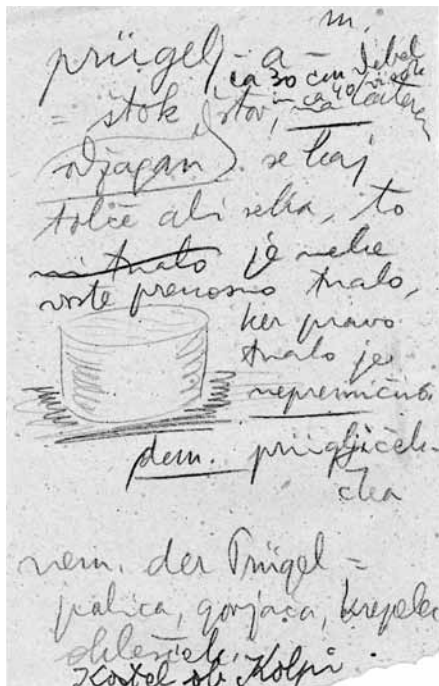 m.
prügelj -a -
ca 30 cm debel
in ca 40 visok
= štok, štor, na katerem
odžagan se kaj
tolče ali seka, to
ni tnalo je neke
vrste prenosno tnalo,
ker pravo
tnalo je
nepremično.
dem. prügljiček-
čka
nem. der Prügel =
palica, gorjača, krepelec
Kostel ob Kolpi.